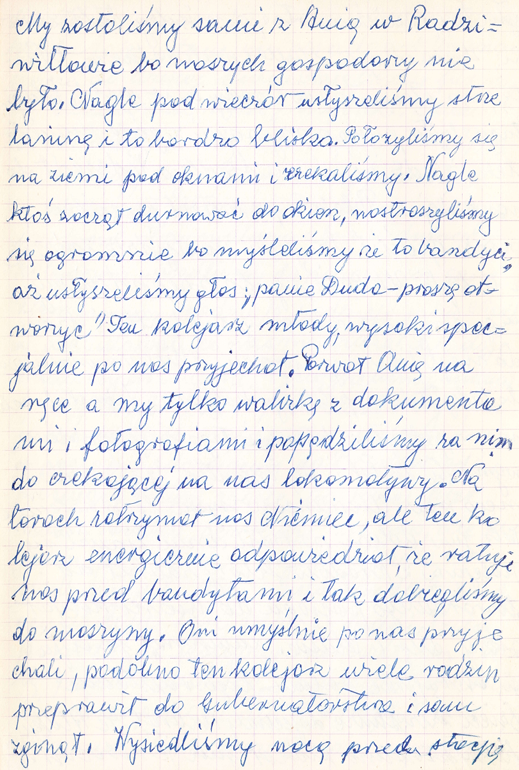 My zostaliśmy sami z Anią w Radzi=
wiłłowie bo naszych gospodarzy nie
było. Nagle pod wieczór usłyszeliśmy strze
laninę i to bardzo bliska. Położyliśmy się
na ziemi pod oknami i czekaliśmy. Nagle
ktoś zaczął dumować do okien, nastraszyliśmy
się ogromnie bo myśleliśmy że to bandyci,
aż usłyszeliśmy głos: „panie Duda - proszę ot-
worzyć" Ten kolejarz młody, wysoki spec=
jalnie po nas przyjechał. Porwał Anię na
ręce a my tylko walizkę z dokumenta
mi i fotografiami i popędziliśmy za nim
do czekającej na nas lokomotywy. Na
torach zatrzymał nas Niemiec, ale ten ko
lejarz energicznie odpowiedział, że ratuje
nas przed bandytami i tak dobiegliśmy
do maszyny. Oni umyślnie po nas przyje
chali, podobno ten kolejarz wiele rodzin
przeprawił do Gubernatorstwa i sam
zginął. Wysiedliśmy nocą przed stacją